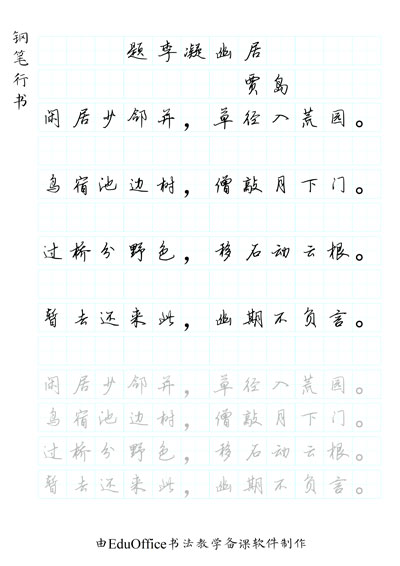 钢笔行书
题李凝幽居
贾岛
闲居少邻并，草径入荒园。
鸟宿池边树，僧敲月下门。
过桥分野色，移石动云根。
暂去还来此，幽期不负言。
闲居少邻并，草径入荒园。
鸟宿池边树，僧敲月下门。
过桥分野色，移石动云根。
暂去还来此，幽期不负言。
由EduOffice书法教学备课软件制作